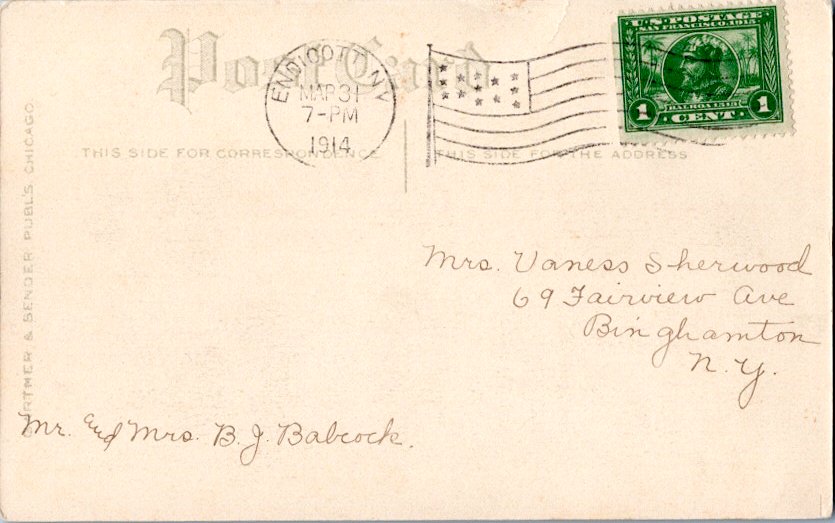 Post Card
ENDICOTT, N.Y.
MAR 31
7-PM
1914
U.S. POSTAGE
SAN FRANCISCO, 1915
BALBOA 1513
1 CENT 1
THIS SIDE FOR CORRESPONDENCE
THIS SIDE FOR THE ADDRESS
& BENDER, PUBL'S, CHICAGO.
Mrs. Vaness Sherwood
69 Fairview Ave
Binghamton
N.Y.
Mr. and Mrs. B. J. Babcock.